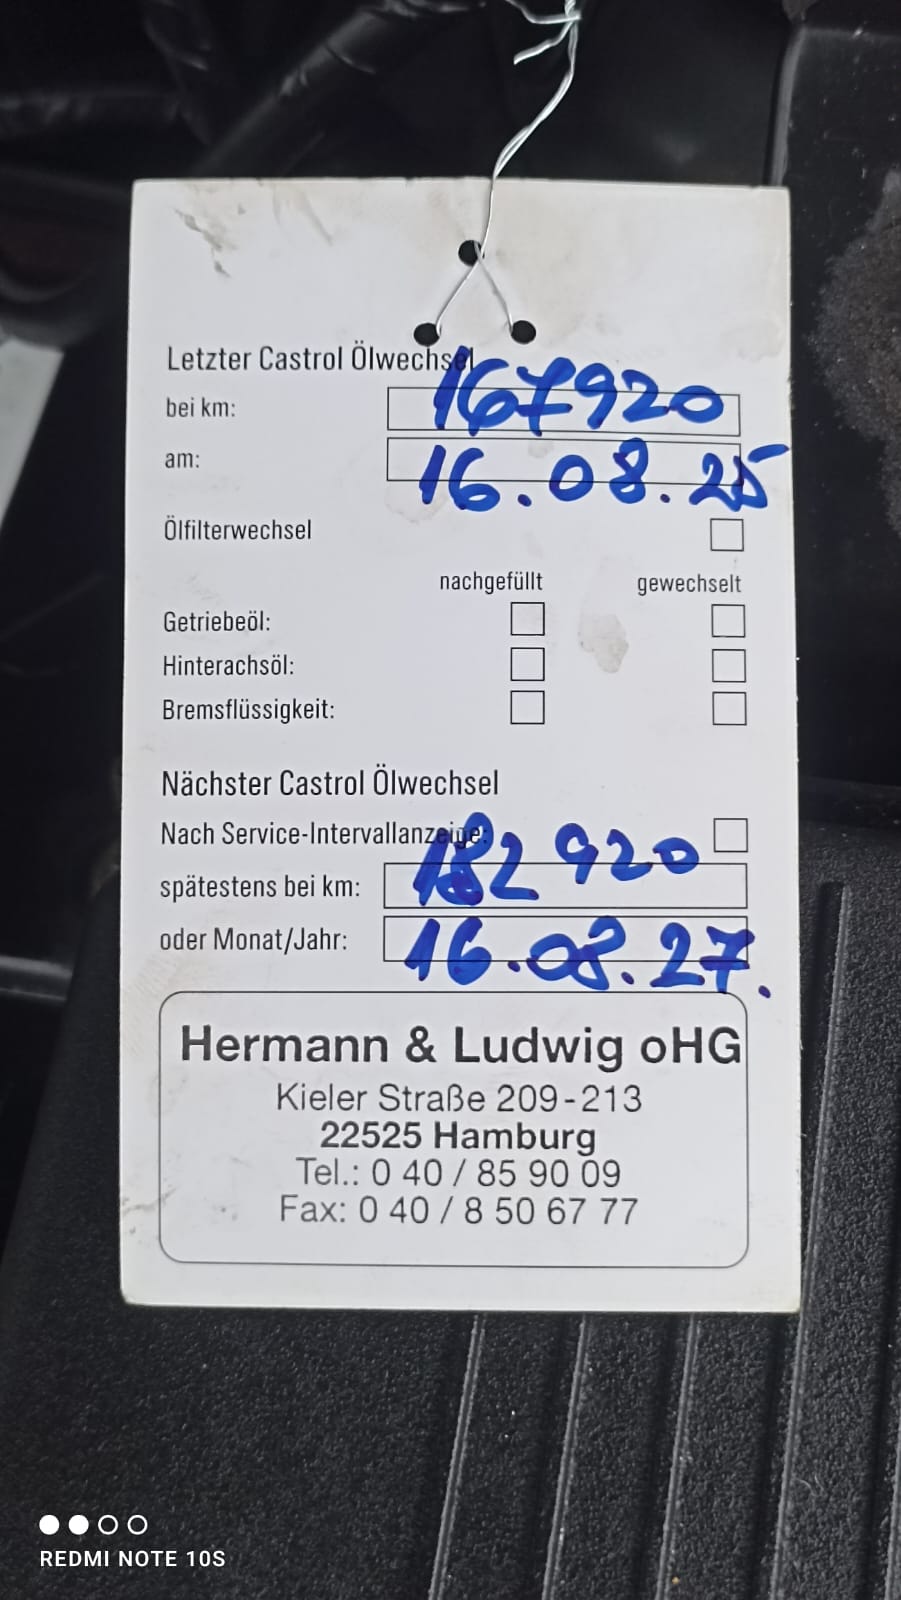 Letzter Castrol Ölwechsel
bei km: 167920
am: 16.08.25
Ölfilterwechsel
nachgefüllt gewechselt
Getriebeöl:
Hinterachsöl:
Bremsflüssigkeit:
Nächster Castrol Ölwechsel
Nach Service-Intervallanzeige:
spätestens bei km: 182920
oder Monat/Jahr: 16.08.27.
Hermann & Ludwig oHG
Kieler Straße 209-213
22525 Hamburg
Tel.: 0 40 / 85 90 09
Fax: 0 40 / 8 50 67 77
REDMI NOTE 10S